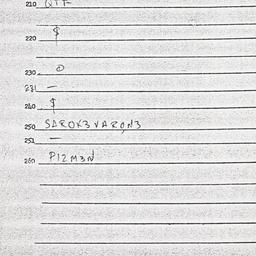 210 QTF
220 $
230
231 —
240 $
250 SAROK3VARON3
251 —
260 P12M3N